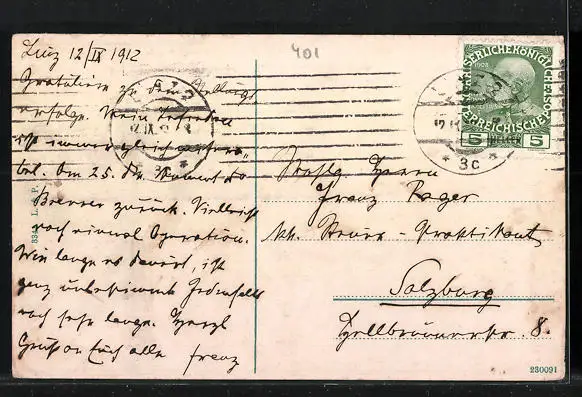 Linz 12/IX 1912
Gratuliere zu dem
erfolge. Mein Befinden
ist immer gleich
Am 25. Dr.
Brenner zurück. Vielleicht
noch einmal Operation.
Wie lange es dauert, ist
ganz unbestimmt Jedenfalls
noch sehr lange. Herzl
Gruß an Euch alle Franz
401
LINZ
12 IX
3c
KAISERLICHE KÖNIGLICHE
ÖSTERREICHISCHE
1908
5 HELLER 5
Wohlg. Herrn
Franz Rager
kk. Steuer-Praktikant
Salzburg
Hellbrunnerstr. 8.
L. & P.
230091